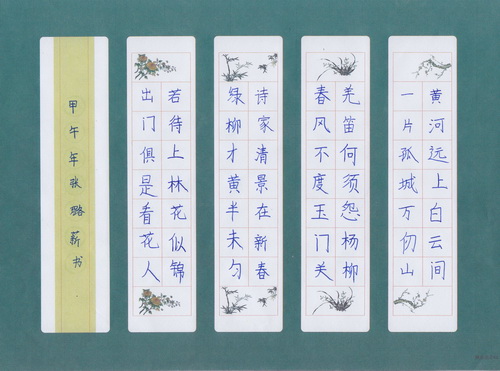 黄河远上白云间
一片孤城万仞山
羌笛何须怨杨柳
春风不度玉门关
诗家清景在新春
绿柳才黄半未匀
若待上林花似锦
出门俱是看花人
甲午年张璐薪书